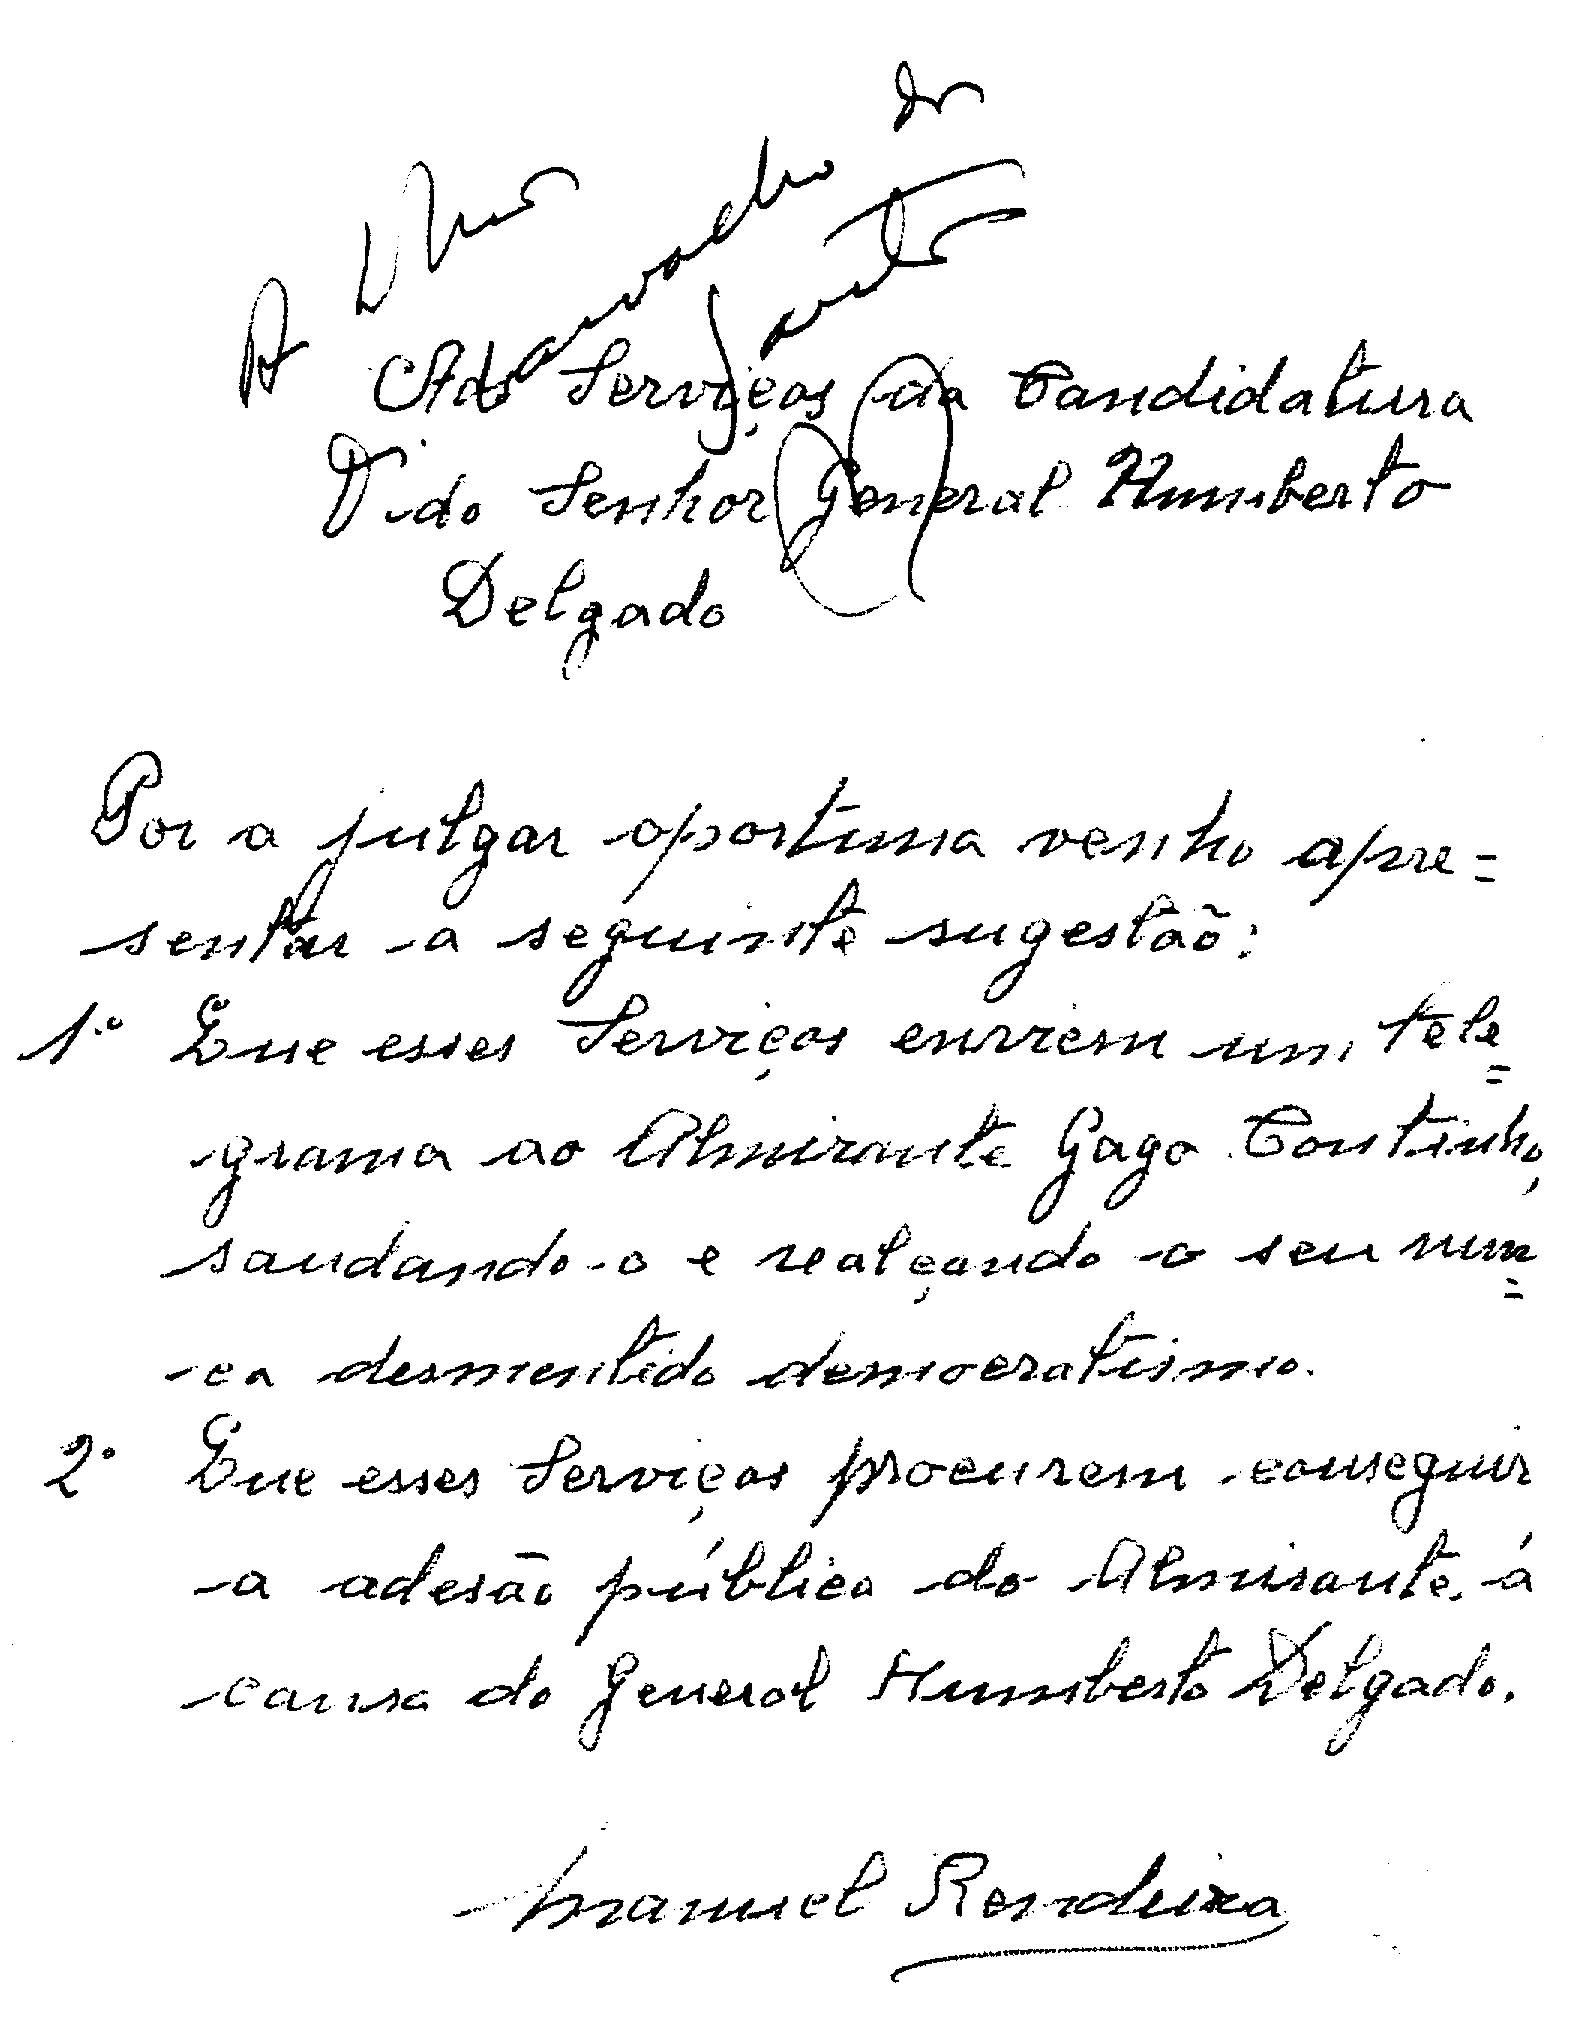 Aos Serviços da Candidatura
do Senhor General Humberto
Delgado
Por a julgar oportuna venho apre=
sentar a seguinte sugestão:
1º Que esses Serviços enviem um tele=
grama ao Almirante Gago Coutinho,
saudando-o e realçando o seu nun=
ca desmentido democratismo.
2º Que esses Serviços procurem conseguir
a adesão pública do Almirante á
causa do General Humberto Delgado.
Manuel Rendeiro